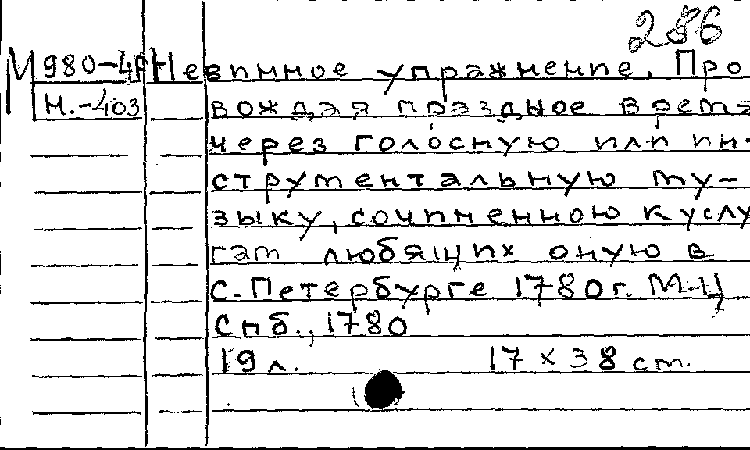 286
М 980-4Р Невинное упражнение, Про
Н.-403 вождая праздное время
через голосную или ин-
струментальную му-
зыку, сочиненною к услу
гам любящих оную в
С.-Петербурге 1780г. М-Ц
Спб., 1780
19 л. 17 × 38 cm.